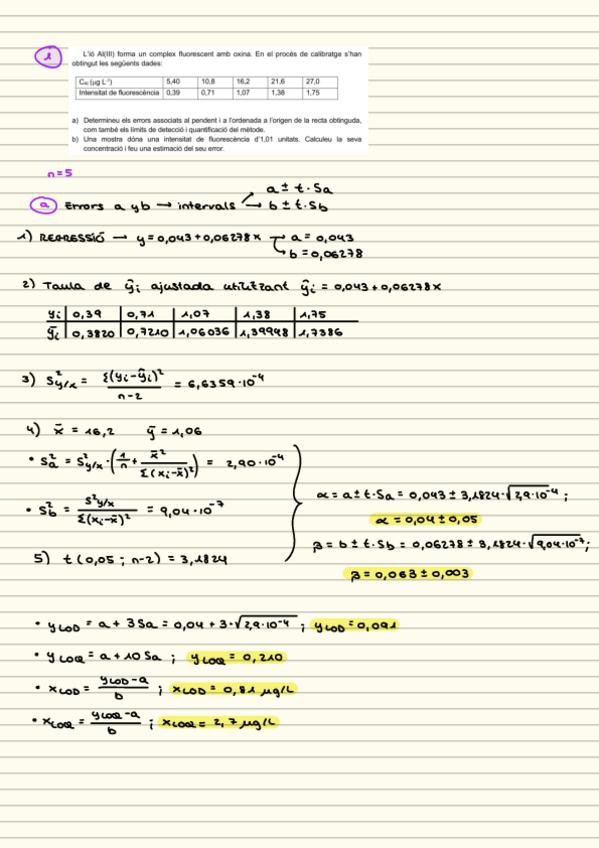 1
L'ió Al(III) forma un complex fluorescent amb oxina. En el procés de calibratge s'han
obtingut les següents dades:
C_Al (µg L⁻¹) 5,40 10,8 16,2 21,6 27,0
Intensitat de fluorescència 0,39 0,71 1,07 1,38 1,75
a) Determineu els errors associats al pendent i a l'ordenada a l'origen de la recta obtinguda,
com també els límits de detecció i quantificació del mètode.
b) Una mostra dóna una intensitat de fluorescència d'1,01 unitats. Calculeu la seva
concentració i feu una estimació del seu error.
n=5
a Errors a y b → intervals → a ± t·Sa
→ b ± t·Sb
1) REGRESSIÓ → y = 0,043 + 0,06278x → a = 0,043
→ b = 0,06278
2) Taula de ŷi ajustada utilitzant ŷi = 0,043 + 0,06278x
yi 0,39 0,71 1,07 1,38 1,75
ŷi 0,3820 0,7210 1,06036 1,39948 1,7386
3) S²y/x = Σ(yi-ŷi)² / n-2 = 6,6359·10⁻⁴
4) x̄ = 16,2 ȳ = 1,06
• Sa² = S²y/x · (1/n + x̄² / Σ(xi-x̄)²) = 2,90·10⁻⁴
• Sb² = S²y/x / Σ(xi-x̄)² = 9,04·10⁻⁷
5) t (0,05 ; n-2) = 3,1824
α = a ± t·Sa = 0,043 ± 3,1824·√2,9·10⁻⁴ ;
α = 0,04 ± 0,05
β = b ± t·Sb = 0,06278 ± 3,1824·√9,04·10⁻⁷ ;
β = 0,063 ± 0,003
• yLOD = a + 3Sa = 0,04 + 3·√2,9·10⁻⁴ ; yLOD = 0,091
• yLOQ = a + 10Sa ; yLOQ = 0,210
• xLOD = yLOD-a / b ; xLOD = 0,81 µg/L
• xLOQ = yLOQ-a / b ; xLOQ = 2,7 µg/L